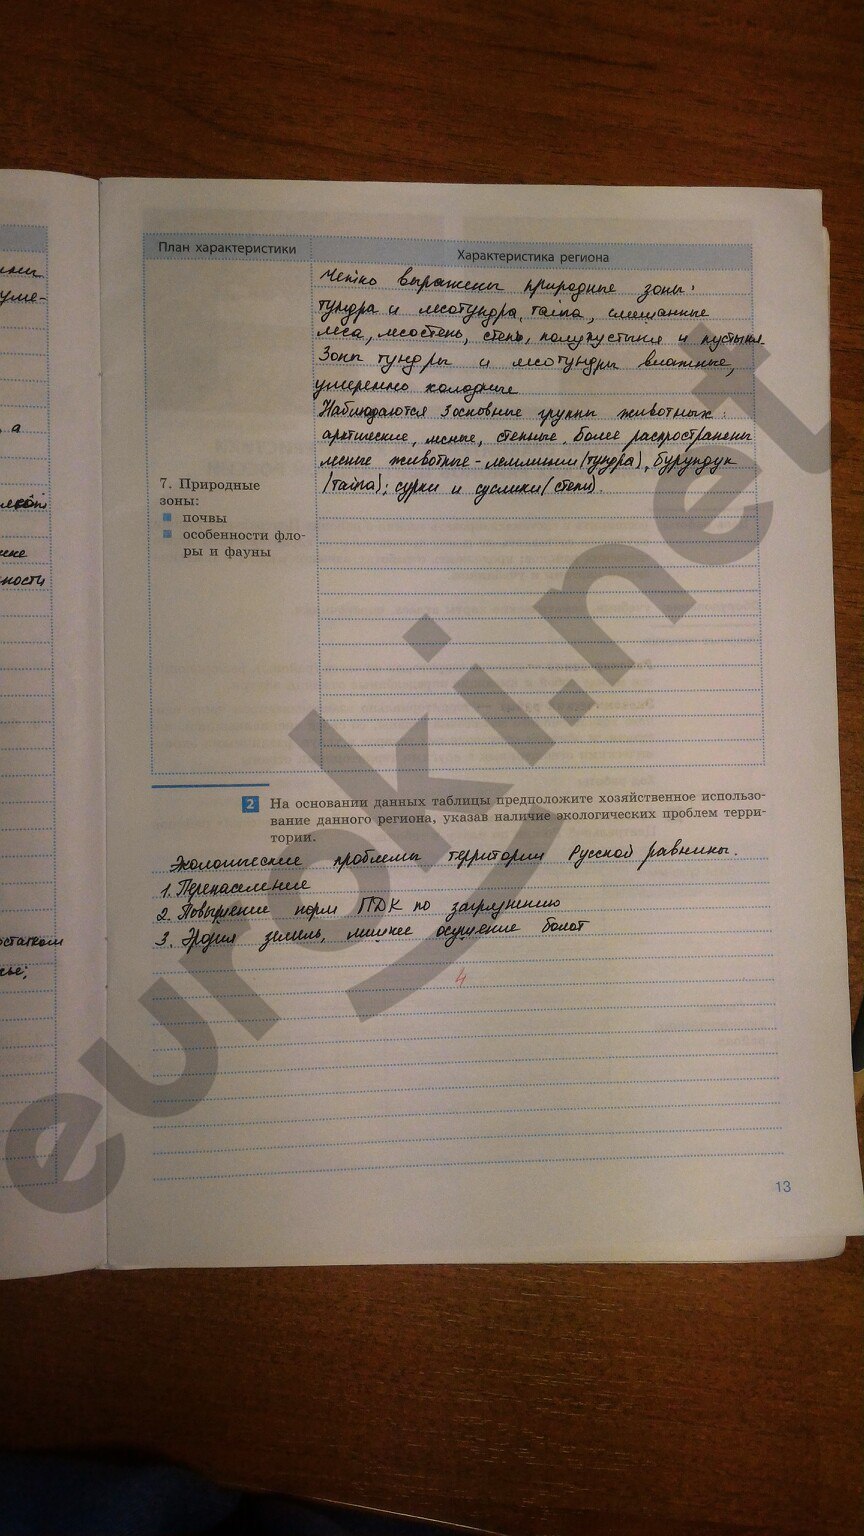 План характеристики
Характеристика региона
Четко выражены природные зоны:
тундра и лесотундра, тайга, смешанные
леса, лесостепь, степь, полупустыня и пустыня.
Зоны тундры и лесотундры влажные,
умеренно холодные
Наблюдаются 3 основные группы животных:
арктические, лесные, степные. Более распространены
лесные животные - лемминги (тундра), бурундук
(тайга); сурки и суслики (степи).
7. Природные
зоны:
почвы
особенности фло-
ры и фауны
2 На основании данных таблицы предположите хозяйственное использо-
вание данного региона, указав наличие экологических проблем терри-
тории.
Экологические проблемы территории Русской равнины.
1. Перенаселение
2. Повышение норм ПДК по загрязнению
3. Эрозия земель, лишнее осушение болот
4
13
уме-
а
ности
euroki.net